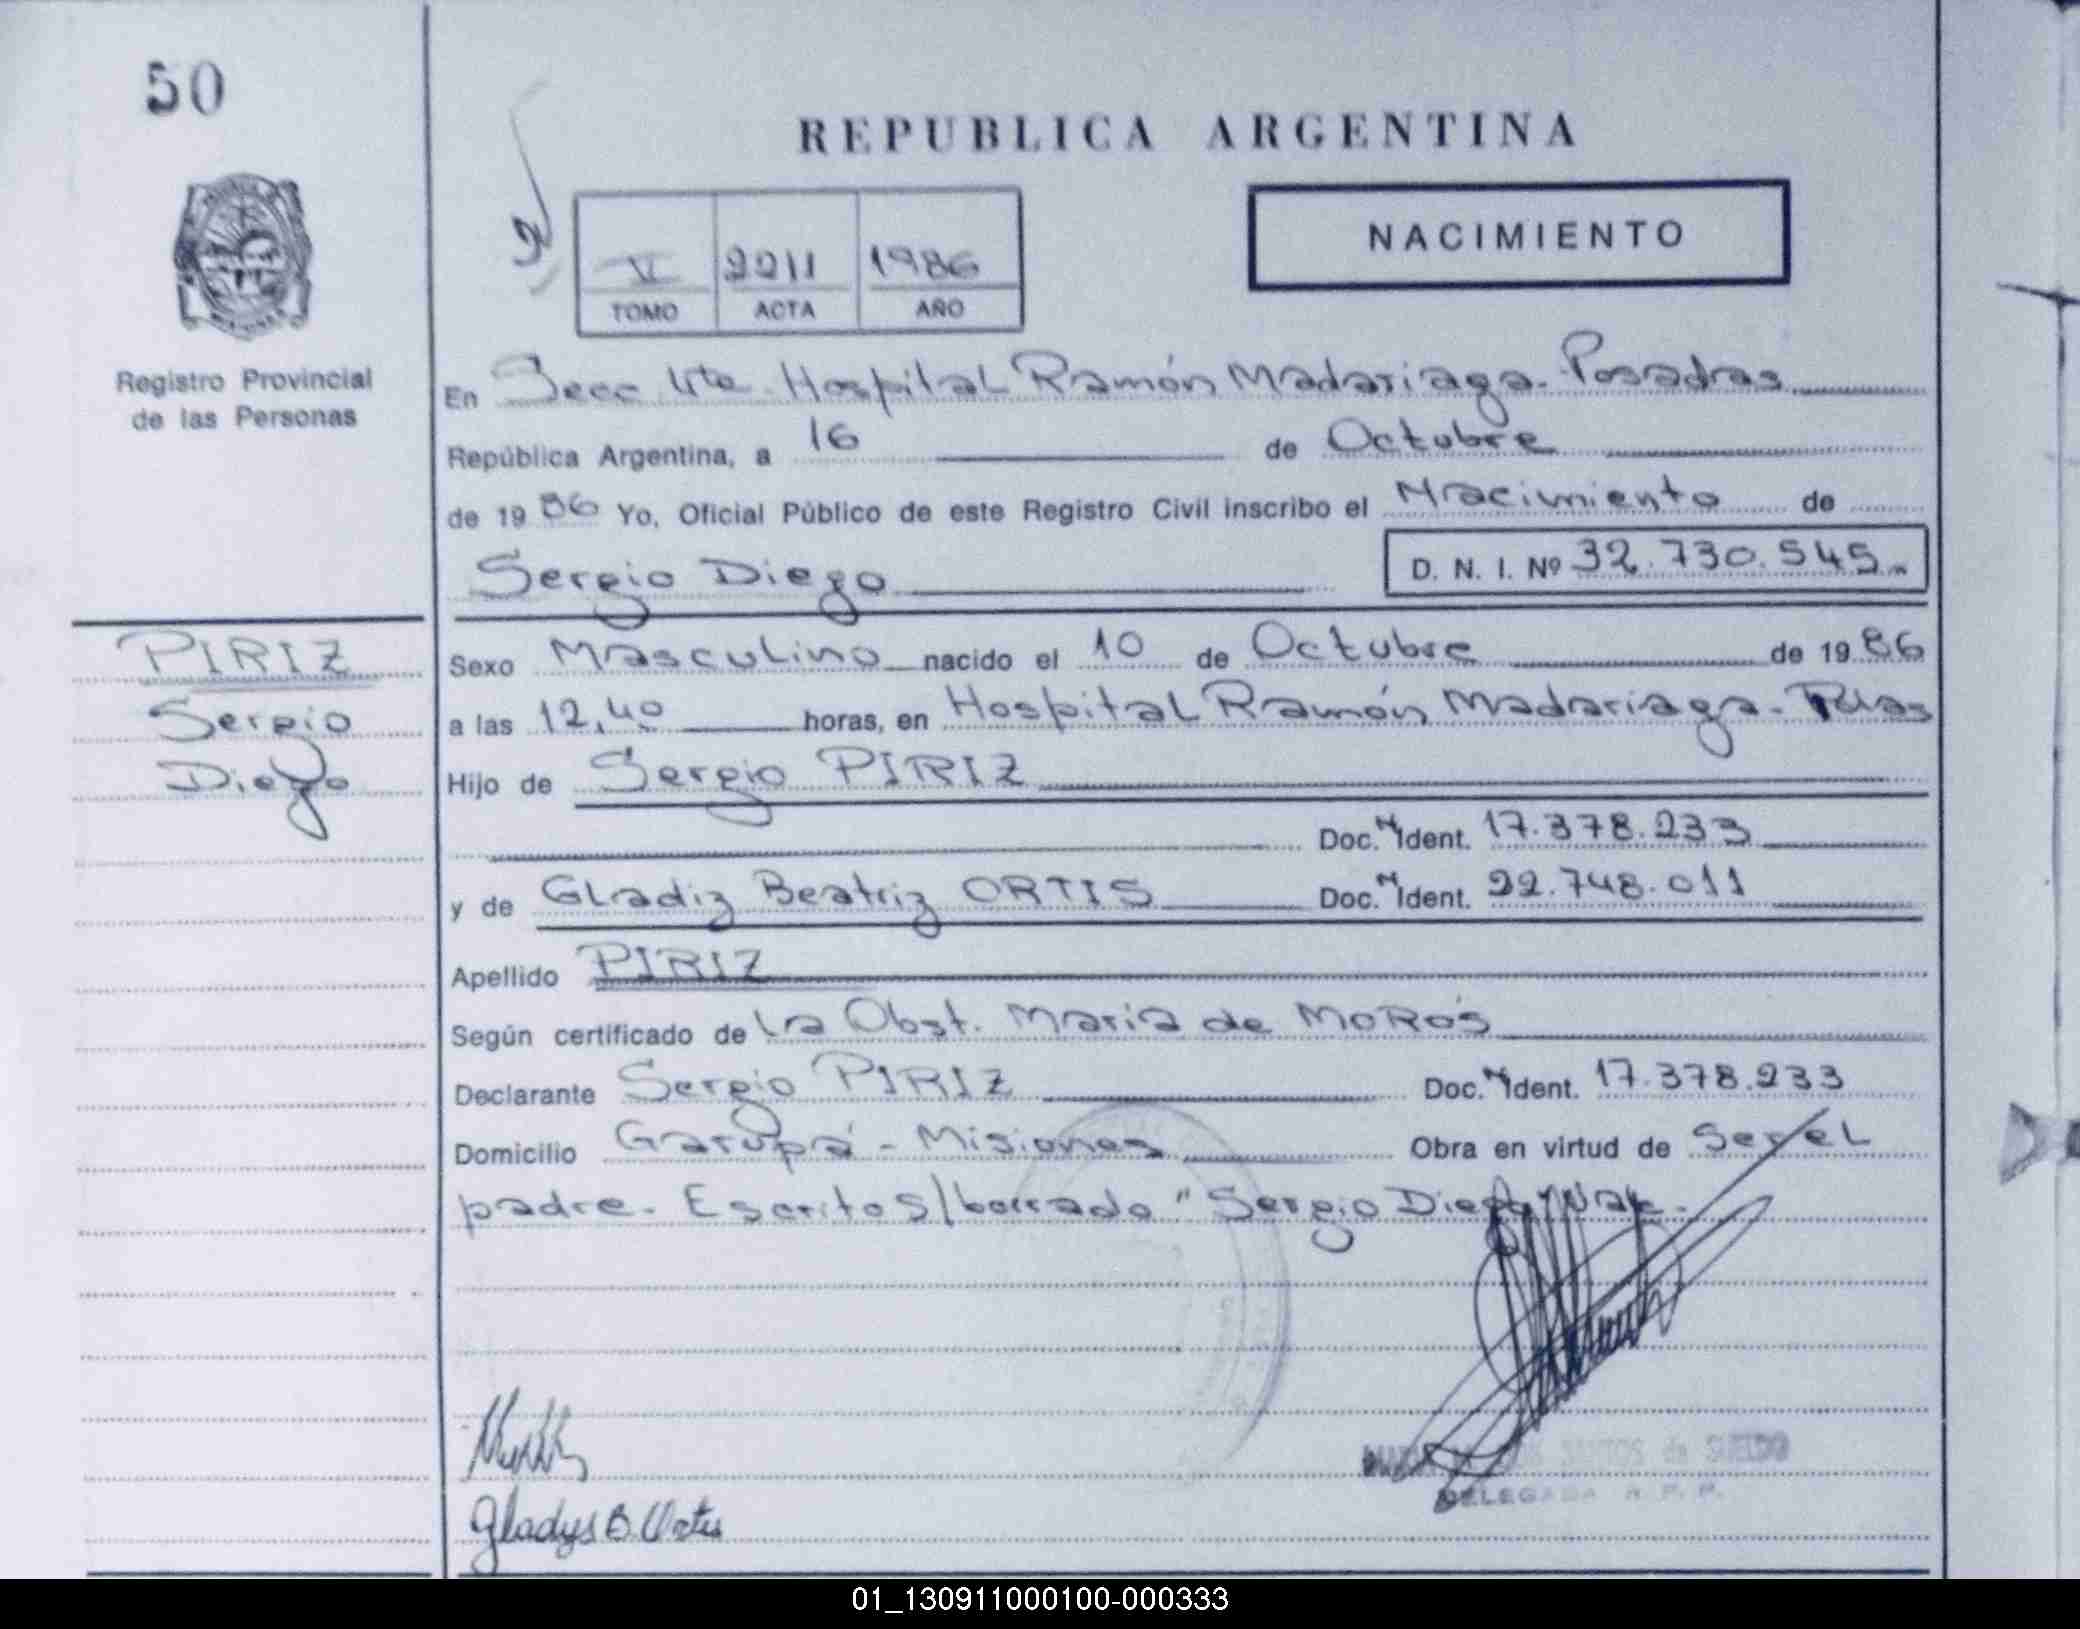 50
REPUBLICA ARGENTINA
NACIMIENTO
V 2211 1986
TOMO ACTA AÑO
Registro Provincial
de las Personas
En Secc 4ta. Hospital Ramón Madariaga. Posadas
República Argentina, a 16 de Octubre
de 1986 Yo, Oficial Público de este Registro Civil inscribo el Nacimiento de
Sergio Diego D. N. I. Nº 32.730.545
PIRIZ
Sergio
Diego
Sexo Masculino nacido el 10 de Octubre de 1986
a las 12,40 horas, en Hospital Ramón Madariaga. Pdas
Hijo de Sergio PIRIZ
Doc. N Ident. 17.378.233
y de Gladiz Beatriz ORTIS Doc. N Ident. 22.748.011
Apellido PIRIZ
Según certificado de la Obst. Maria de MORós
Declarante Sergio PIRIZ Doc. N Ident. 17.378.233
Domicilio Garupá - Misiones Obra en virtud de Ser el
padre. Escrito S/borrado "Sergio Diego" Vale.
SANTOS de SUELDO
DELEGADA R. P. P.
Gladys B. Ortis
01_130911000100-000333